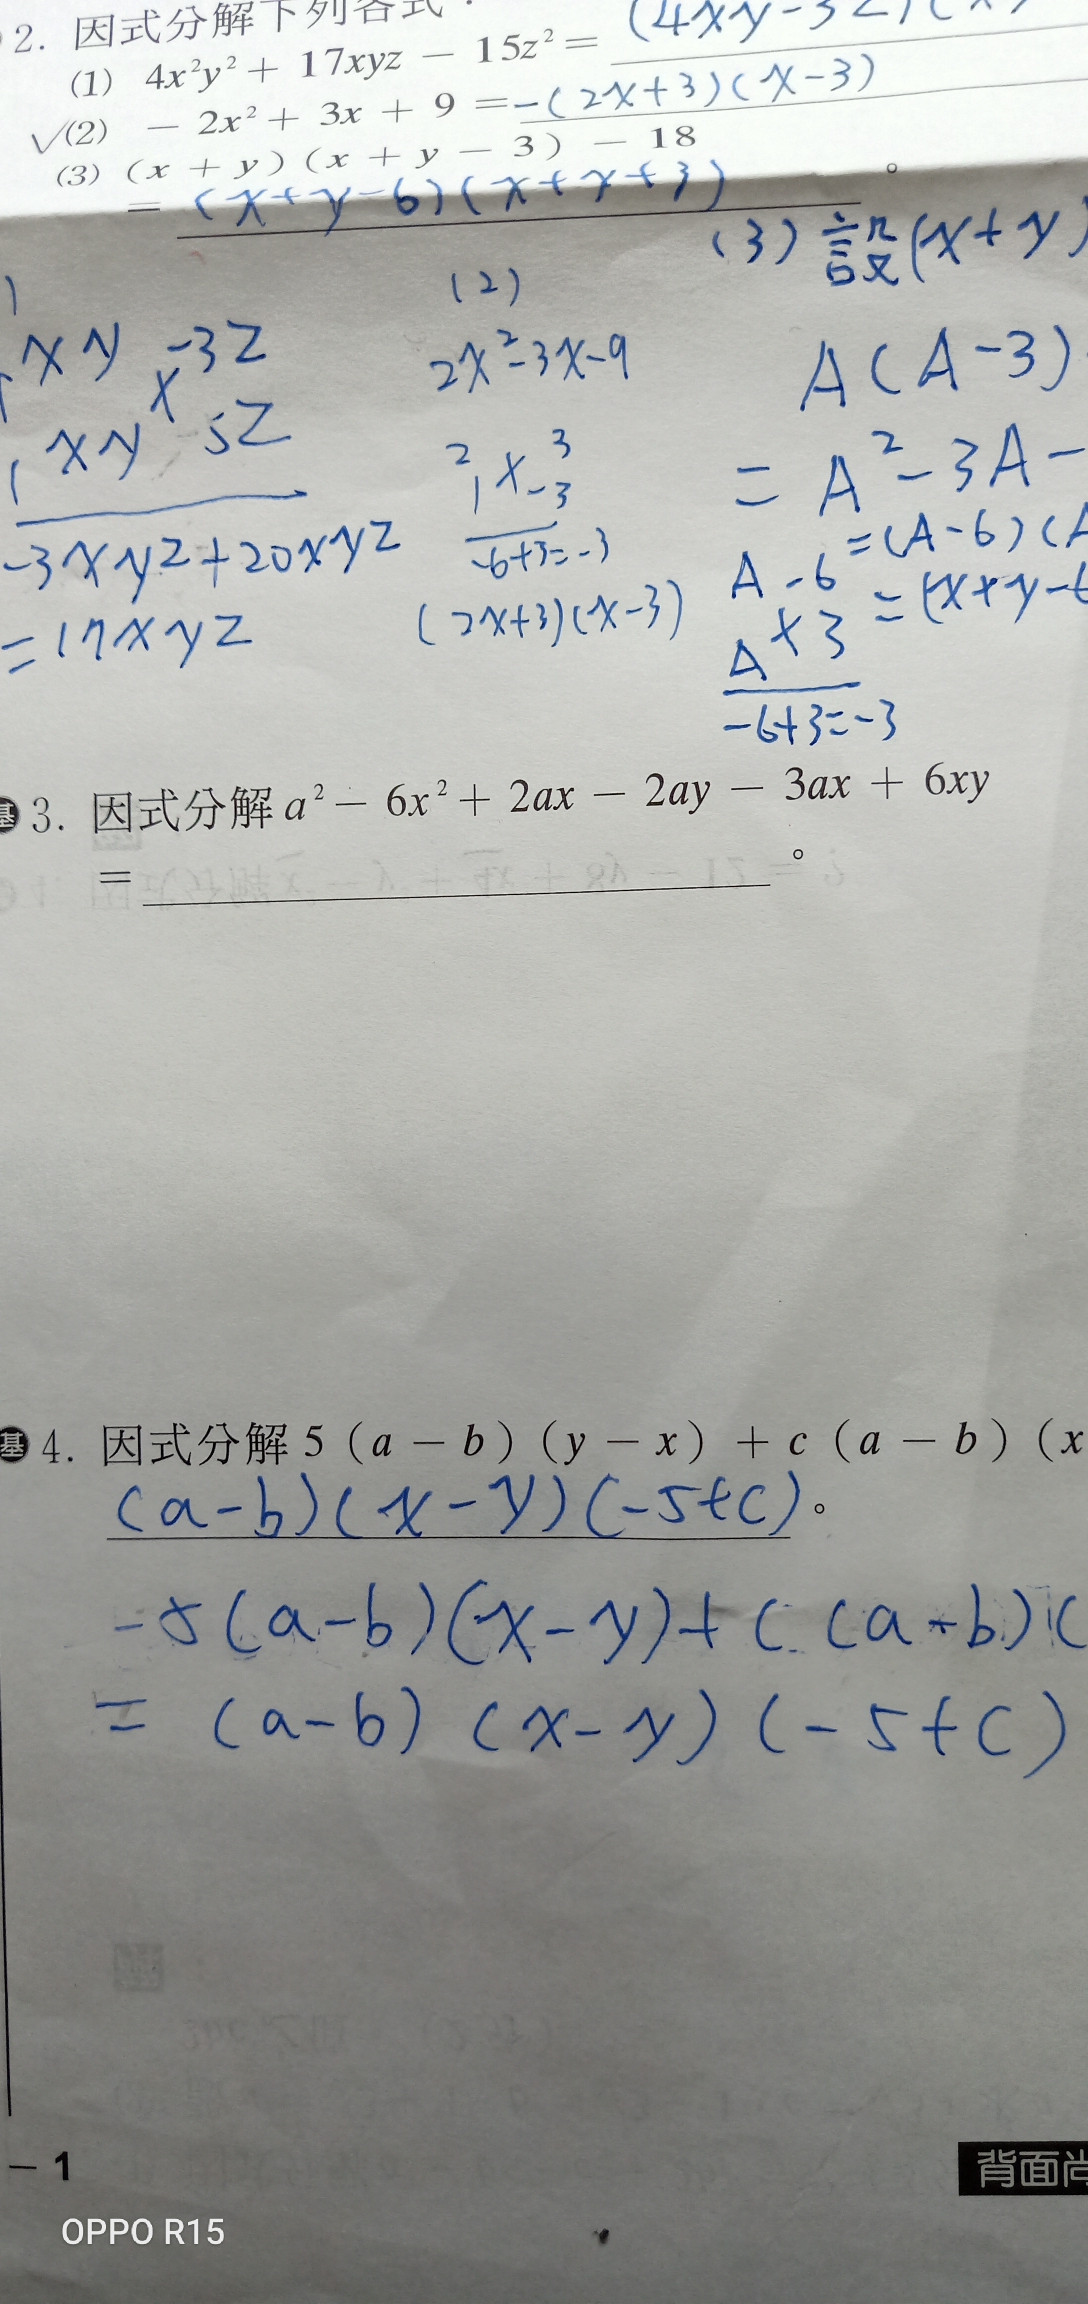 2. 因式分解下列各式：
(1) 4x²y² + 17xyz − 15z² = (4xy-3z)(x
✓(2) − 2x² + 3x + 9 = -(2x+3)(x-3)
(3) (x + y)(x + y − 3) − 18
= (x+y-6)(x+y+3) 。
(3) 設(x+y)
xy -3z
x
1 xy 5z
-3xyz+20xyz
=17xyz
(2)
2x²-3x-9
2 x 3
1 -3
-6+3=-3
(2x+3)(x-3)
A(A-3)
= A²-3A-
=(A-6)(A
=(x+y-6
A -6
x
A 3
-6+3=-3
基 3. 因式分解 a² − 6x² + 2ax − 2ay − 3ax + 6xy
= 。
基 4. 因式分解 5（a − b）（y − x）+ c（a − b）（x
(a-b)(x-y)(-5+c)。
-5(a-b)(x-y)+c(a-b)(
= (a-b)(x-y)(-5+c)
− 1
背面尚
OPPO R15